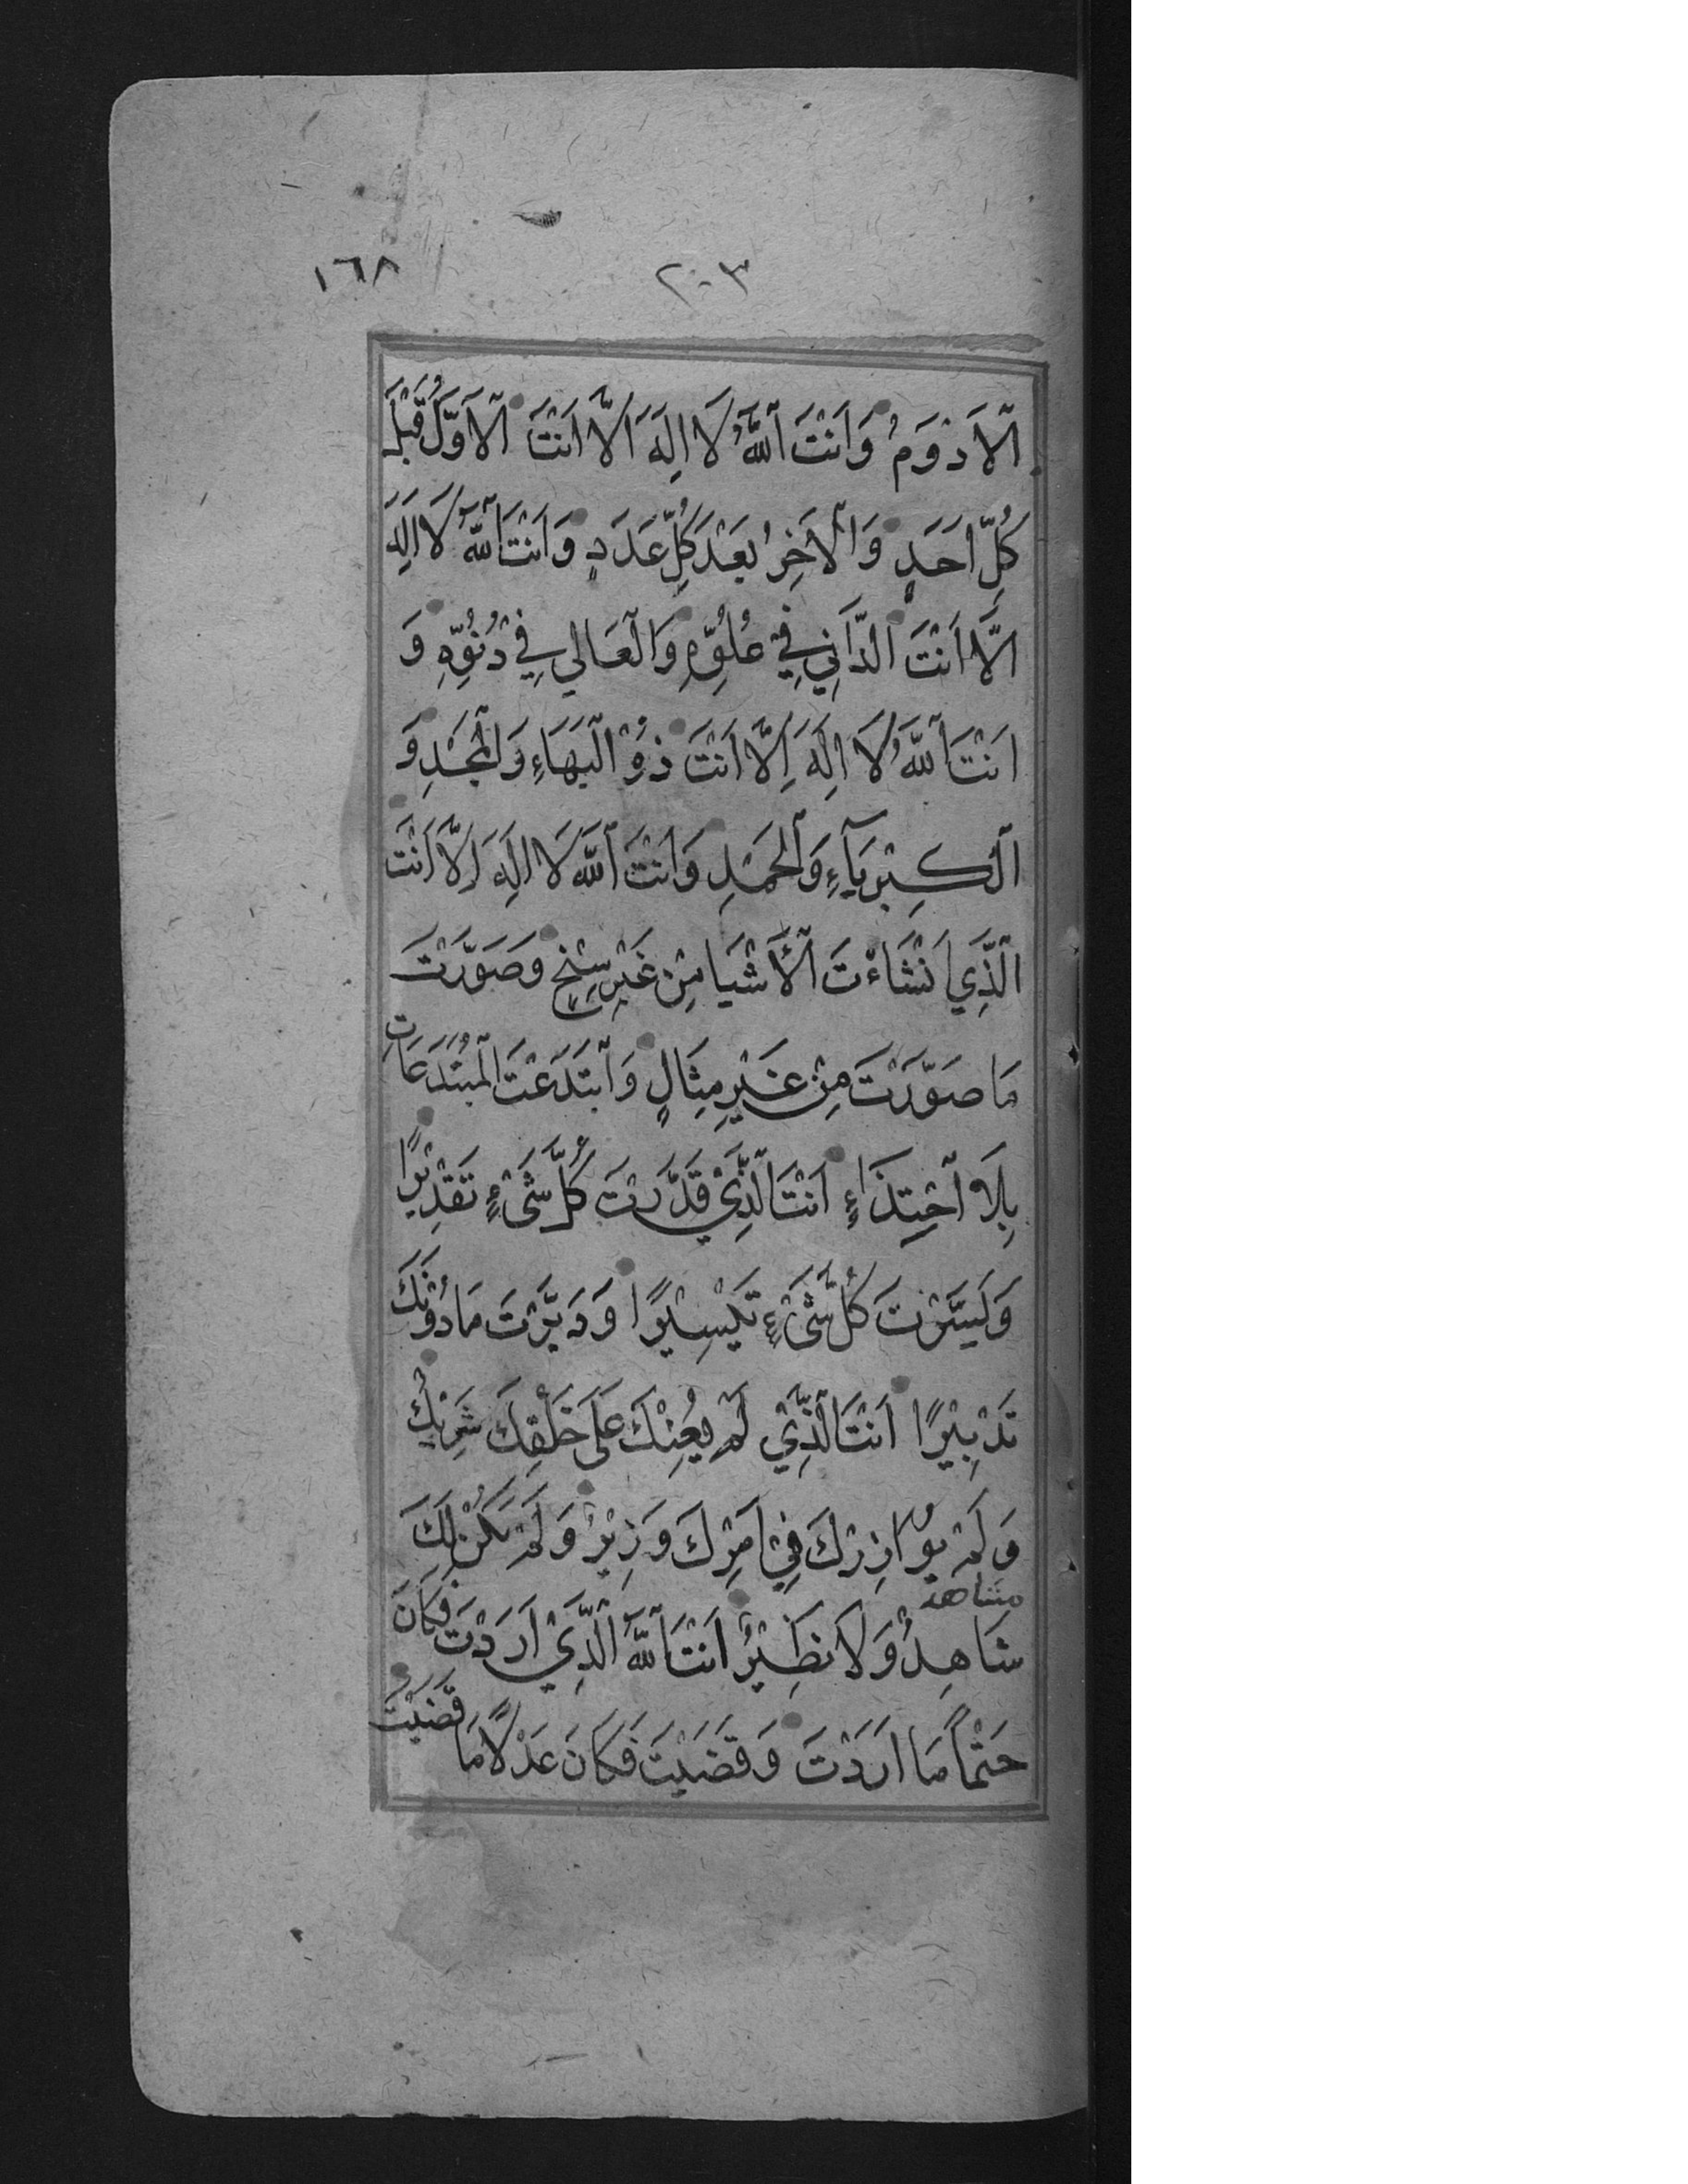 ٢٠٣ ١٦٨
اَلْاَدْوَمُ وَاَنْتَ اَللّٰهُ لَا اِلٰهَ اِلَّا اَنْتَ الْاَوَّلُ قَبْلَ
كُلِّ اَحَدٍ وَالْاٰخِرُ بَعْدَ كُلِّ عَدَدٍ وَاَنْتَ اللّٰهُ لَا اِلٰهَ
اِلَّا اَنْتَ الدَّانِي فِي عُلُوِّهِ وَالْعَالِي فِي دُنُوِّهِ وَ
اَنْتَ اللّٰهُ لَا اِلٰهَ اِلَّا اَنْتَ ذُوْ الْبَهَاءِ وَالْمَجْدِ وَ
الْكِبْرِيَآءِ وَالْحَمْدِ وَاَنْتَ اَللّٰهُ لَا اِلٰهَ اِلَّا اَنْتَ
الَّذِي اَنْشَاْءتَ الْأَشْيَا مِنْ غَيْرِ سِنْخٍ وَصَوَّرْتَ
مَا صَوَّرْتَ مِنْ غَيْرِ مِثَالٍ وَابْتَدَعْتَ الْمُبْتَدَعَاتِ
بِلَا احْتِذَاءٍ اَنْتَ الَّذِيْ قَدَّرْتَ كُلَّ شَىْءٍ تَقْدِيْرًا
وَيَسَّرْتَ كُلَّ شَىْءٍ تَيْسِيْرًا وَدَبَّرْتَ مَا دُوْنَكَ
تَدْبِيْرًا اَنْتَ الَّذِّيْ لَمْ يُعِنْكَ عَلَى خَلْقِكَ شَرِيْكٌ
وَلَمْ يُوَازِرْكَ فِيْ اَمْرِكَ وَزِيْرٌ وَلَمْ يَكُنْ لَكَ
مشاهد
شَاهِدٌ وَلَا نَظِيْرٌ اَنْتَ اللّٰهُ الَّذِيْ اَرَدْتَ فَكَانَ
حَتْمًا مَا اَرَدْتَ وَقَضَيْتَ فَكَانَ عَدْلًا مَا قَضَيْتَ